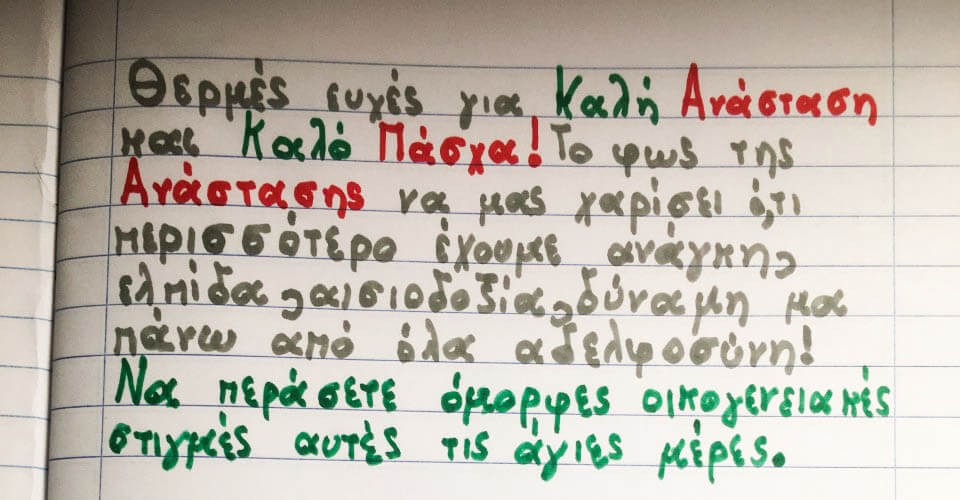 Θερμές ευχές για Καλή Ανάσταση
και Καλό Πάσχα! Το φως της
Ανάστασης να μας χαρίσει ό,τι
περισσότερο έχουμε ανάγκη,
ελπίδα, αισιοδοξία, δύναμη μα
πάνω από όλα αδελφοσύνη!
Να περάσετε όμορφες οικογενειακές
στιγμές αυτές τις άγιες μέρες.